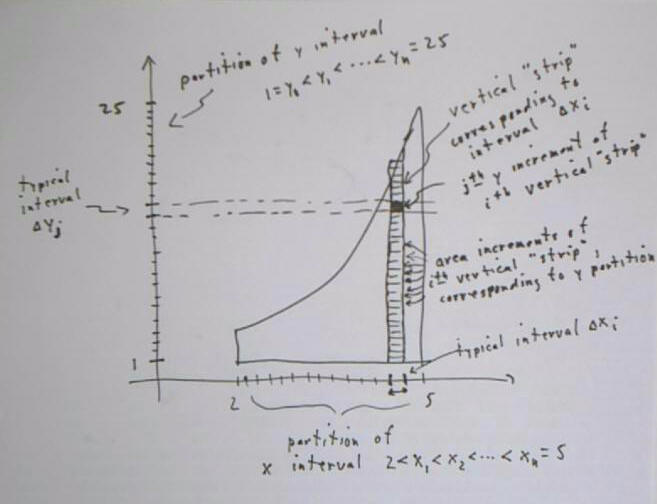 partition of y interval
1=y₀<y₁<...<yₙ=25
25
vertical "strip"
corresponding to
interval Δxᵢ
jth y increment of
ith vertical "strip"
typical
interval
Δyⱼ
area increments of
ith vertical "strip",
corresponding to y partition
typical interval Δxᵢ
1
2
5
partition of
x interval 2<x₁<x₂<...<xₙ=5